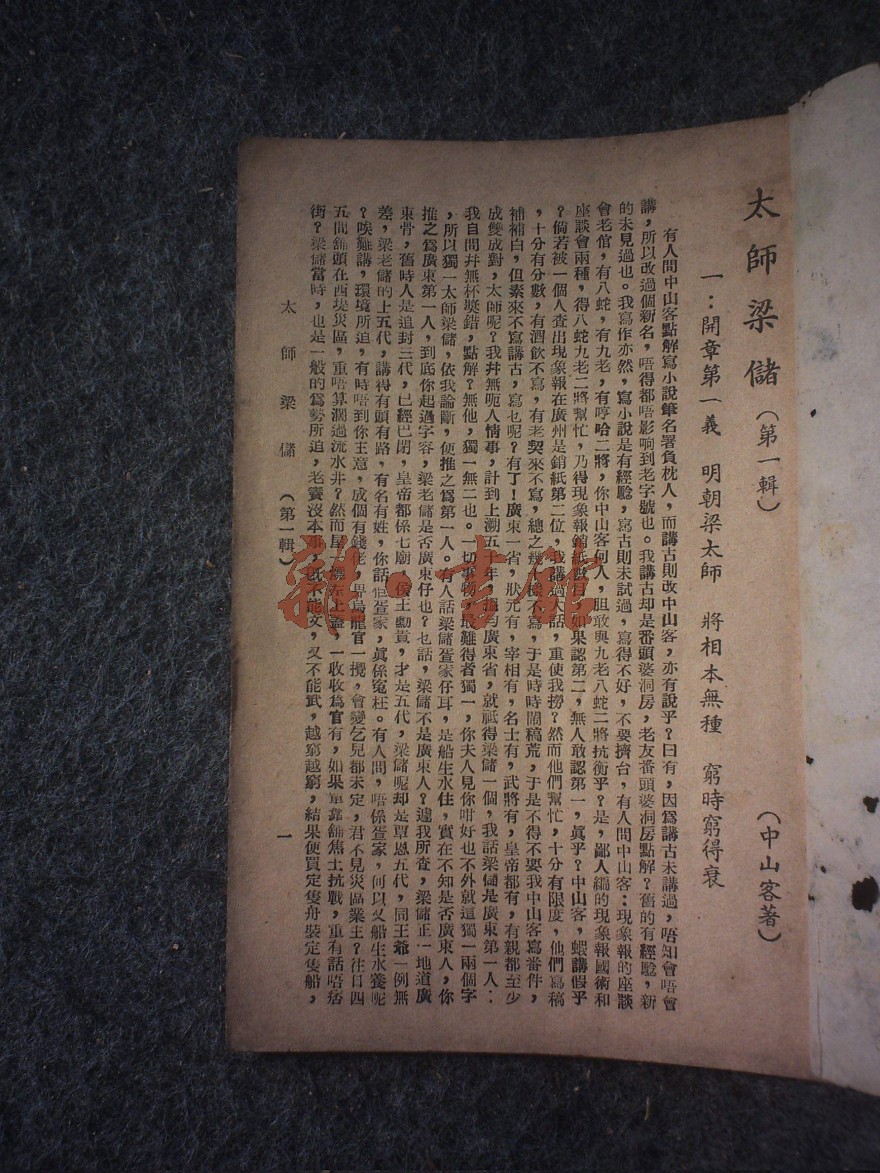 太師梁儲（第一輯）
（中山客著）
一：開章第一義 明朝梁太師 將相本無種 窮時窮得衰
有人問中山客點解寫小說筆名署負枕人，而講古則改中山客，亦有說乎？曰有，因爲講古未講過，唔知會唔會
講，所以改過個新名，唔得都唔影响到老字號也。我講古却是番頭婆洞房，老友番頭婆洞房點解？舊的有經驗，新
的未見過也。我寫作亦然，寫小說是有經驗，寫古則未試過，寫得不好，不要擠台，有人問中山客：現象報的座談
會老倌，有八蛇，有九老，有哼哈二將，你中山客何人，胆敢與九老八蛇二將抗衡乎？是，鄙人編的現象報國術和
座談會兩種，得八蛇九老二將幫忙，乃得現象報銷紙數目，如果認第二，無人敢認第一，眞乎？中山客，蝦講假乎
？倘若被一個人查出現象報在廣州是銷紙第二位，我講過大話，重使我撈？然而他們幫忙，十分有限度，他們寫稿
，十分有分數，有酒飲不寫，有老契來不寫，總之幾大樣不寫，于是時時鬧稿荒，于是不得不要我中山客寫番件，
補補白，但素來不寫講古，寫乜呢？有了！廣東一省，狀元有，宰相有，名士有，武將有，皇帝都有，有親都至少
成雙成對，太師呢？我幷無呃人情事，計到上溯五 年， 均廣東省，就祗得梁儲一個，我話梁儲是廣東第一人：
我自問幷無杯奬錯，點解？無他，獨一無二也。一切事物，最難得者獨一，你夫人見你咁好也不外就這獨一兩個字
，所以獨一太師梁儲，依我論斷，便推之爲第一人。有人話梁儲疍家仔耳，是船生水住，實在不知是否廣東人，你
推之爲廣東第一人，到底你起過字容，梁老儲是否廣東仔也？乜話，梁儲不是廣東人？據我所查，梁儲正一地道廣
東骨，舊時人是追封三代，已經巴閉，皇帝都係七廟，侯王勳貴，才是五代，梁儲呢却是覃恩五代，同王爺一例無
差，梁老儲的上五代，講得有頭有路，有名有姓，你話佢疍家，眞係寃枉。有人問，唔係疍家，何以又船生水養呢
？唉難講，環境所迫，有時唔到你主意，成個有錢佬，畀烏龍官一攪，會變乞兒都未定，君不見災區業主？往日四
五間舖頭在西堤災區，重唔算濶過流水井？然而屋一 上蓋，一收收爲官有，如果單靠舖焦土抗戰，重有話唔痞
街？梁儲當時，也是一般的爲勢所迫，老竇沒本事，旣不能文，又不能武，越窮越窮，結果便買定隻舟裝定隻船，
太師梁儲（第一輯）
一
雜·書館